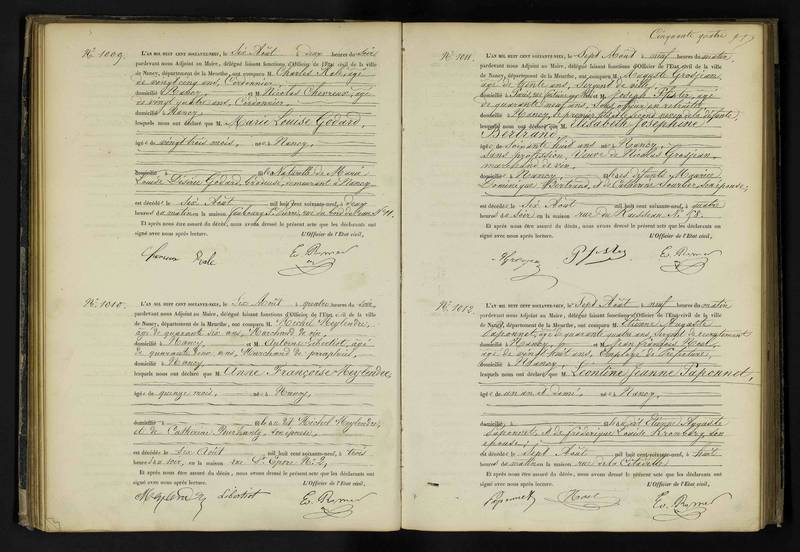 Cinquante quatre
N° 1009.
L'AN MIL HUIT CENT SOIXANTE-NEUF, le Six Août à deux heures du Soir
pardevant nous Adjoint au Maire, délégué faisant fonctions d'Officier de l'État civil de la ville
de Nancy, département de la Meurthe, ont comparu M. Charles âgé
de vingt cinq ans, Cordonnier
domicilié à Nancy et M. Nicolas Chevreux, âgé
de vingt quatre ans, Cordonnier,
domicilié à Nancy
lesquels nous ont déclaré que M. Marie Louise Godard,
âgé e de vingt trois mois, né e à Nancy,
domicilié à fille Naturelle de Marie
Louise Désirée Godard, Brodeuse, demeurant à Nancy
est décédé e le Six Août mil huit cent soixante-neuf, à deux
heures du matin en la maison faubourg St Pierre, rue du N° 11.
Et après nous être assuré du décès, nous avons dressé le présent acte que les déclarants ont
signé avec nous après lecture. L'Officier de l'État civil,
N° 1010.
L'AN MIL HUIT CENT SOIXANTE-NEUF, le Six Août à quatre heures du soir
pardevant nous Adjoint au Maire, délégué faisant fonctions d'Officier de l'État civil de la ville
de Nancy, département de la Meurthe, ont comparu M. Michel Heylendre,
âgé de quarante six ans, Marchand de vin,
domicilié à Nancy et M. Antoine âgé
de quarante cinq ans, Marchand de parapluies,
domicilié à Nancy
lesquels nous ont déclaré que M. Anne Françoise Heylendre,
âgé e de quinze mois, né e à Nancy,
domicilié à fille du dit Michel Heylendre,
et de Catherine son épouse,
est décédé e le Six Août mil huit cent soixante-neuf, à trois
heures du soir, en la maison rue St Epvre N° 2,
Et après nous être assuré du décès, nous avons dressé le présent acte que les déclarants ont
signé avec nous après lecture. L'Officier de l'État civil,
N° 1011.
L'AN MIL HUIT CENT SOIXANTE-NEUF, le Sept Août à neuf heures du matin
pardevant nous Adjoint au Maire, délégué faisant fonctions d'Officier de l'État civil de la ville
de Nancy, département de la Meurthe, ont comparu M. Auguste Grosjean
âgé de trente ans, Sergent de ville,
domicilié à Paris, et M. Joseph âgé
de quarante neuf ans, Sous officier en retraite
domicilié à Nancy, le premier fils le second neveu de la défunte,
lesquels nous ont déclaré que M. Elisabeth Josephine
Bertrand,
âgé e de soixante huit ans né e à Nancy,
sans profession, Veuve de Nicolas Grosjean,
marchand de vin,
domicilié e à Nancy, fille des défunts Maurice
Dominique Bertrand, et de Catherine son épouse;
est décédé e le Six Août mil huit cent soixante-neuf, à quatre
heures du soir en la maison rue du Ruisseau N° 58.
Et après nous être assuré du décès, nous avons dressé le présent acte que les déclarants ont
signé avec nous après lecture. L'Officier de l'État civil,
N° 1012.
L'AN MIL HUIT CENT SOIXANTE-NEUF, le Sept Août à neuf heures du matin
pardevant nous Adjoint au Maire, délégué faisant fonctions d'Officier de l'État civil de la ville
de Nancy, département de la Meurthe, ont comparu M. Etienne Auguste
Paponnet, âgé de quarante ans, Sergent de recrutement
domicilié à Nancy, et M. Jean François
âgé de vingt huit ans, Employé de Préfecture,
domicilié à Nancy
lesquels nous ont déclaré que M. Léontine Jeanne Paponnet,
âgé e de un an et demi, né e à Nancy,
domicilié à fille du dit Etienne Auguste
Paponnet, et de Frédérique Louise son
épouse;
est décédé e le Sept Août mil huit cent soixante-neuf, à huit
heures du matin en la maison rue de la Citadelle
Et après nous être assuré du décès, nous avons dressé le présent acte que les déclarants ont
signé avec nous après lecture. L'Officier de l'État civil,